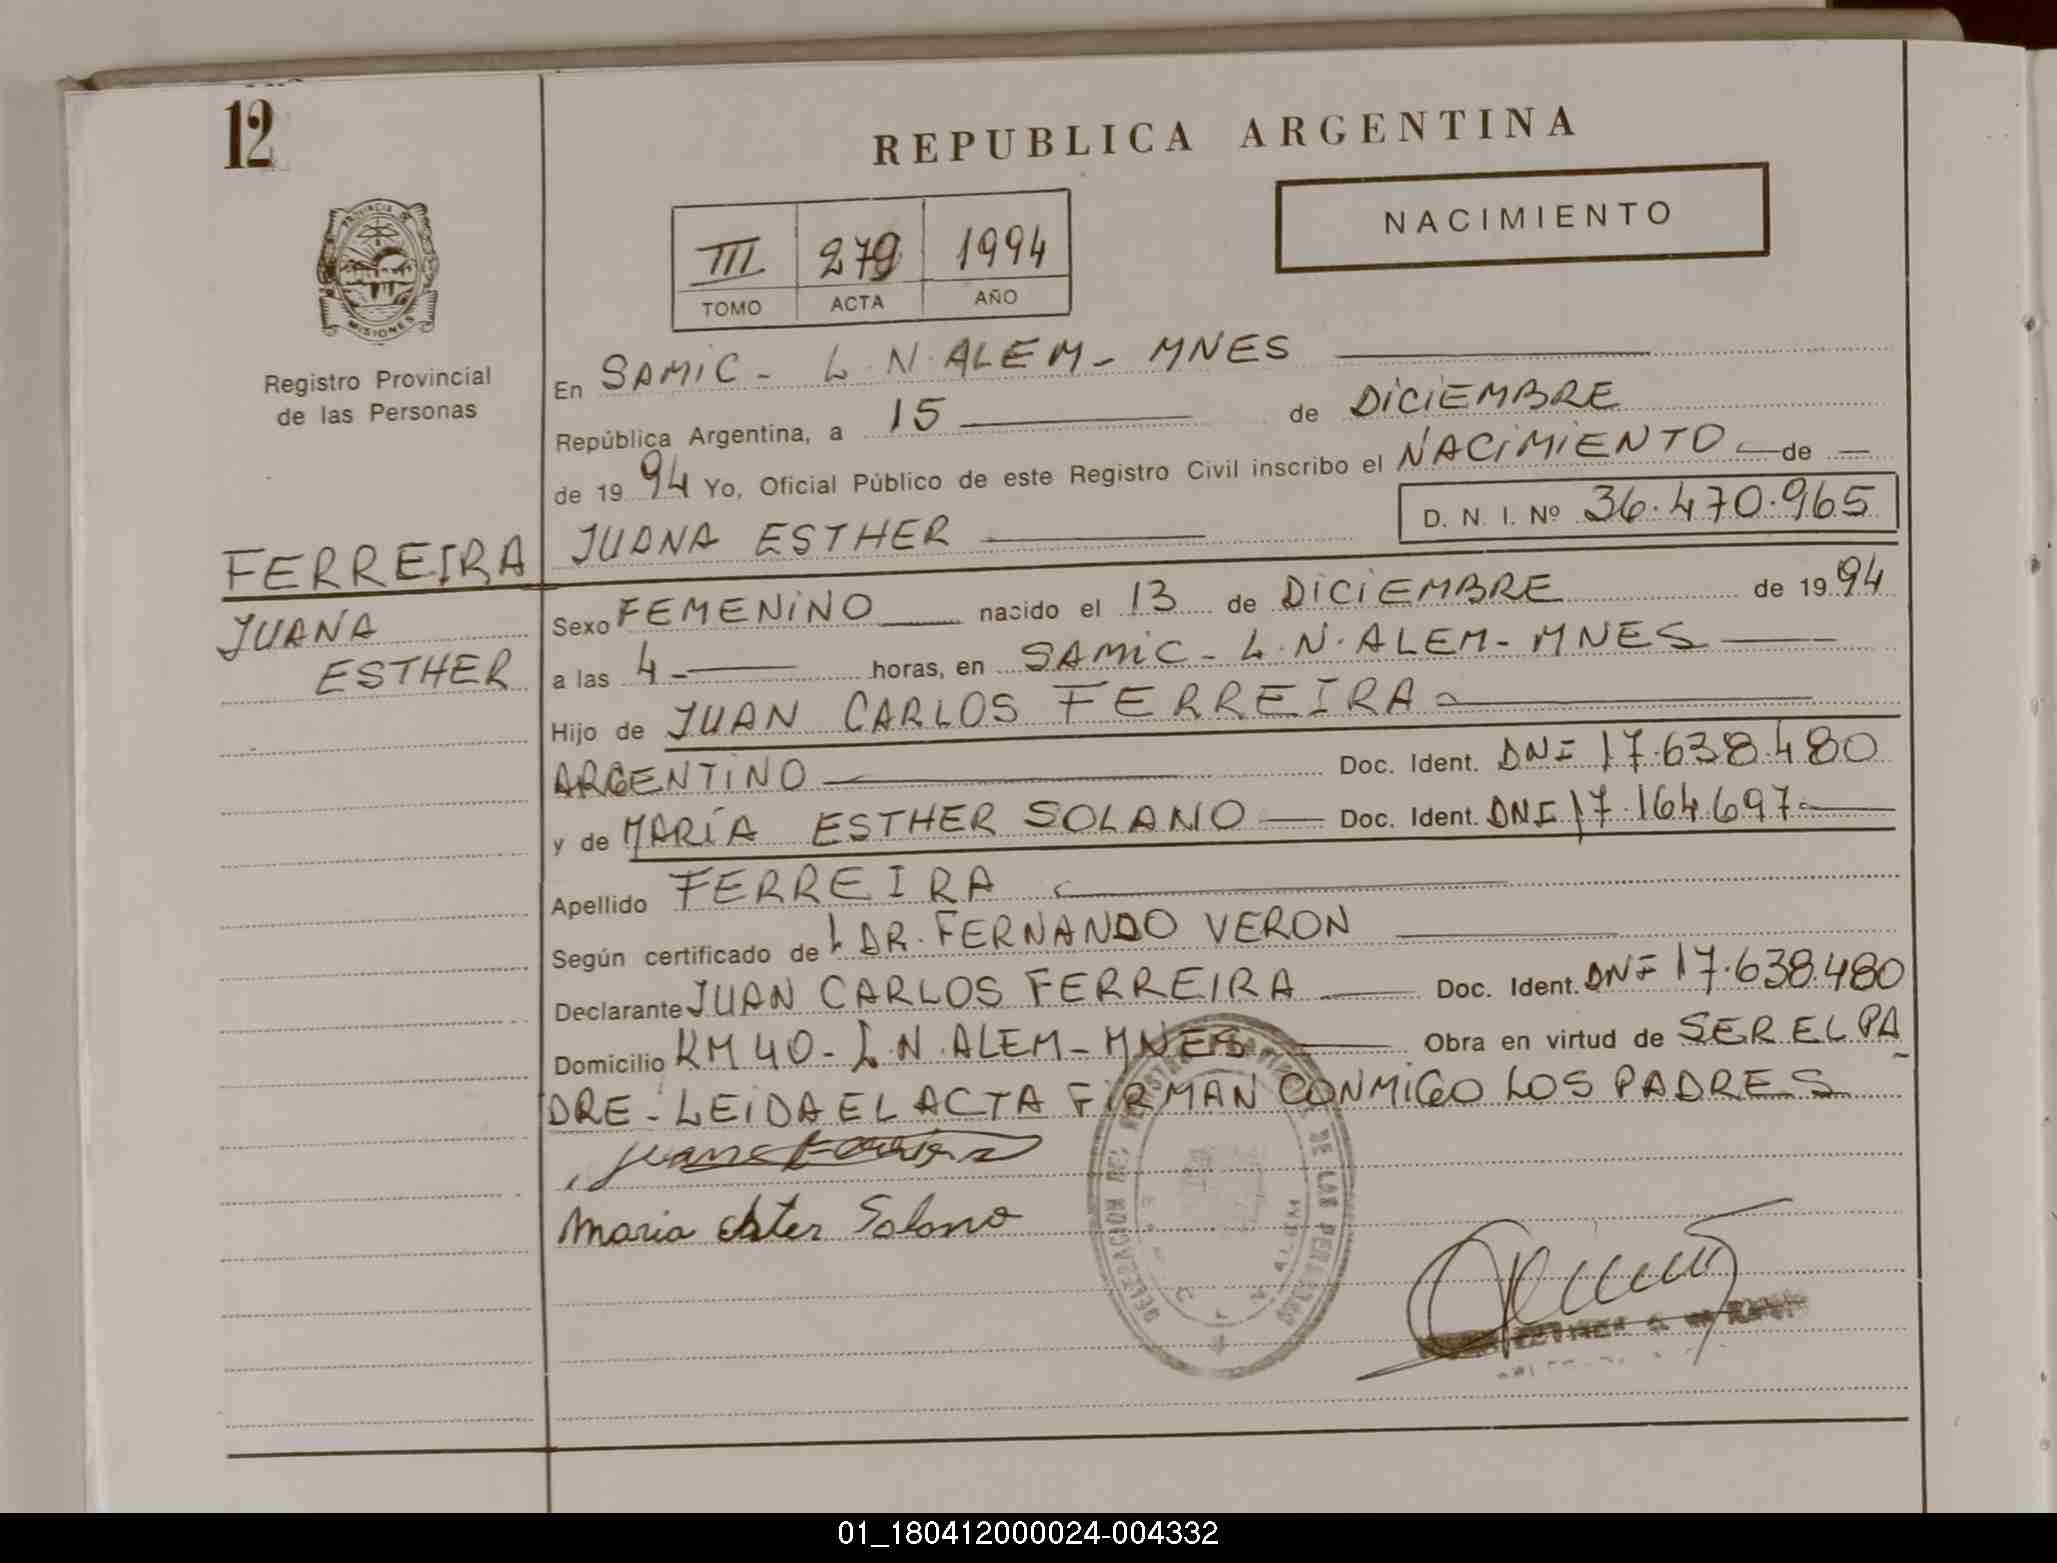 12
REPUBLICA ARGENTINA
NACIMIENTO
PROVINCIA DE
MISIONES
III 279 1994
TOMO ACTA AÑO
Registro Provincial
de las Personas
En SAMIC - L.N. ALEM - MNES
República Argentina, a 15 de DICIEMBRE
de 1994 Yo, Oficial Público de este Registro Civil inscribo el NACIMIENTO de
JUANA ESTHER D. N. I. Nº 36.470.965
FERREIRA
JUANA
ESTHER
Sexo FEMENINO nacido el 13 de DICIEMBRE de 1994
a las 4 - horas, en SAMIC - L.N. ALEM - MNES
Hijo de JUAN CARLOS FERREIRA
ARGENTINO Doc. Ident. DNI 17.638.480
y de MARÍA ESTHER SOLANO Doc. Ident. DNI 17.164.697
Apellido FERREIRA
Según certificado de DR. FERNANDO VERON
Declarante JUAN CARLOS FERREIRA Doc. Ident. DNI 17.638.480
Domicilio KM 40 - L.N. ALEM - MNES Obra en virtud de SER EL PA
DRE - LEIDA EL ACTA FIRMAN CONMIGO LOS PADRES
Maria Ester Solano
DE LAS PERSONAS
01_180412000024-004332